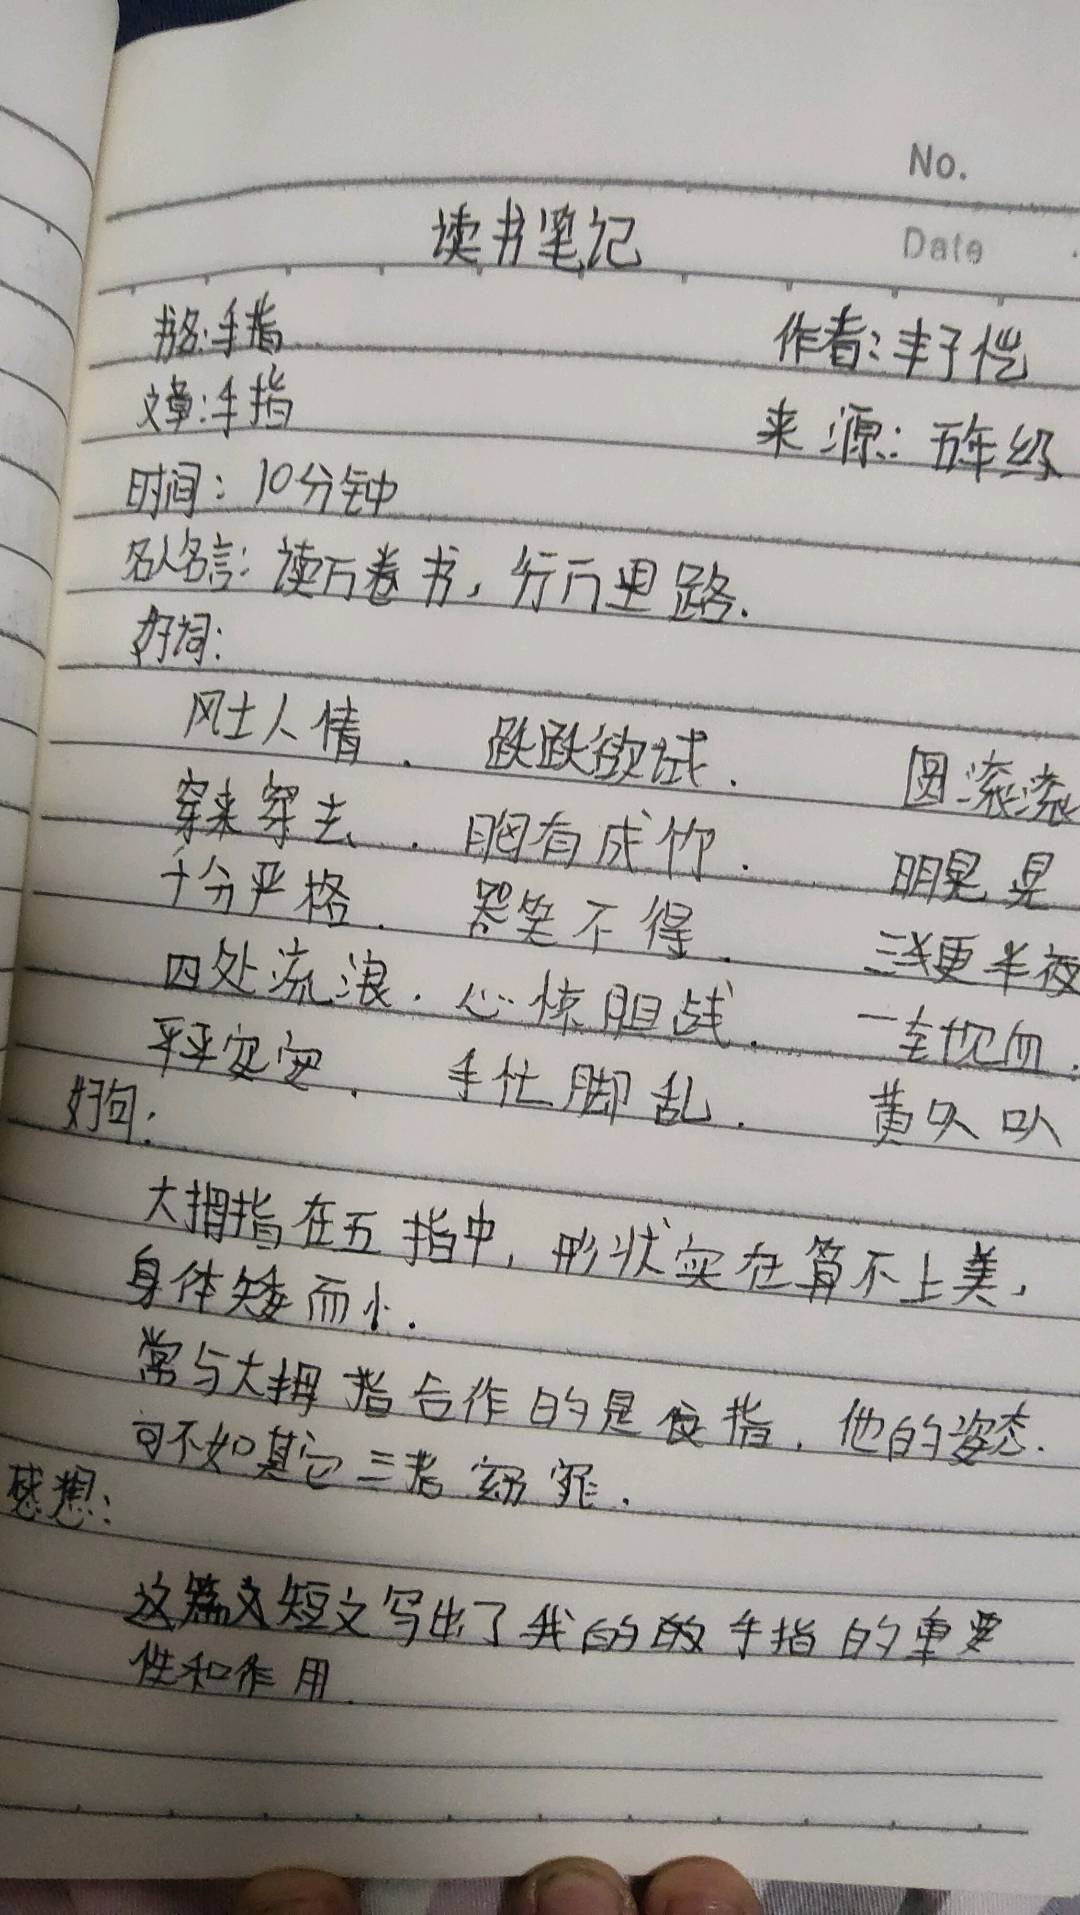 No.
读书笔记 Date
书名:手指 作者:丰子恺
文章:手指 来源:五年级
时间:10分钟
名人名言:读万卷书,行万里路.
好词:
风土人情. 跃跃欲试. 圆滚滚
穿来穿去. 胸有成竹. 明晃晃
十分严格. 哭笑不得. 三更半夜
四处流浪. 心惊胆战. 一针见血.
平平安安. 手忙脚乱. 黄叭叭
好句:
大拇指在五指中,形状实在算不上美,
身体矮而小.
常与大拇指合作的是食指,他的姿态.
可不如其它三指窈窕.
感想:
这篇文短文写出了我的的手指的重要
性和作用.